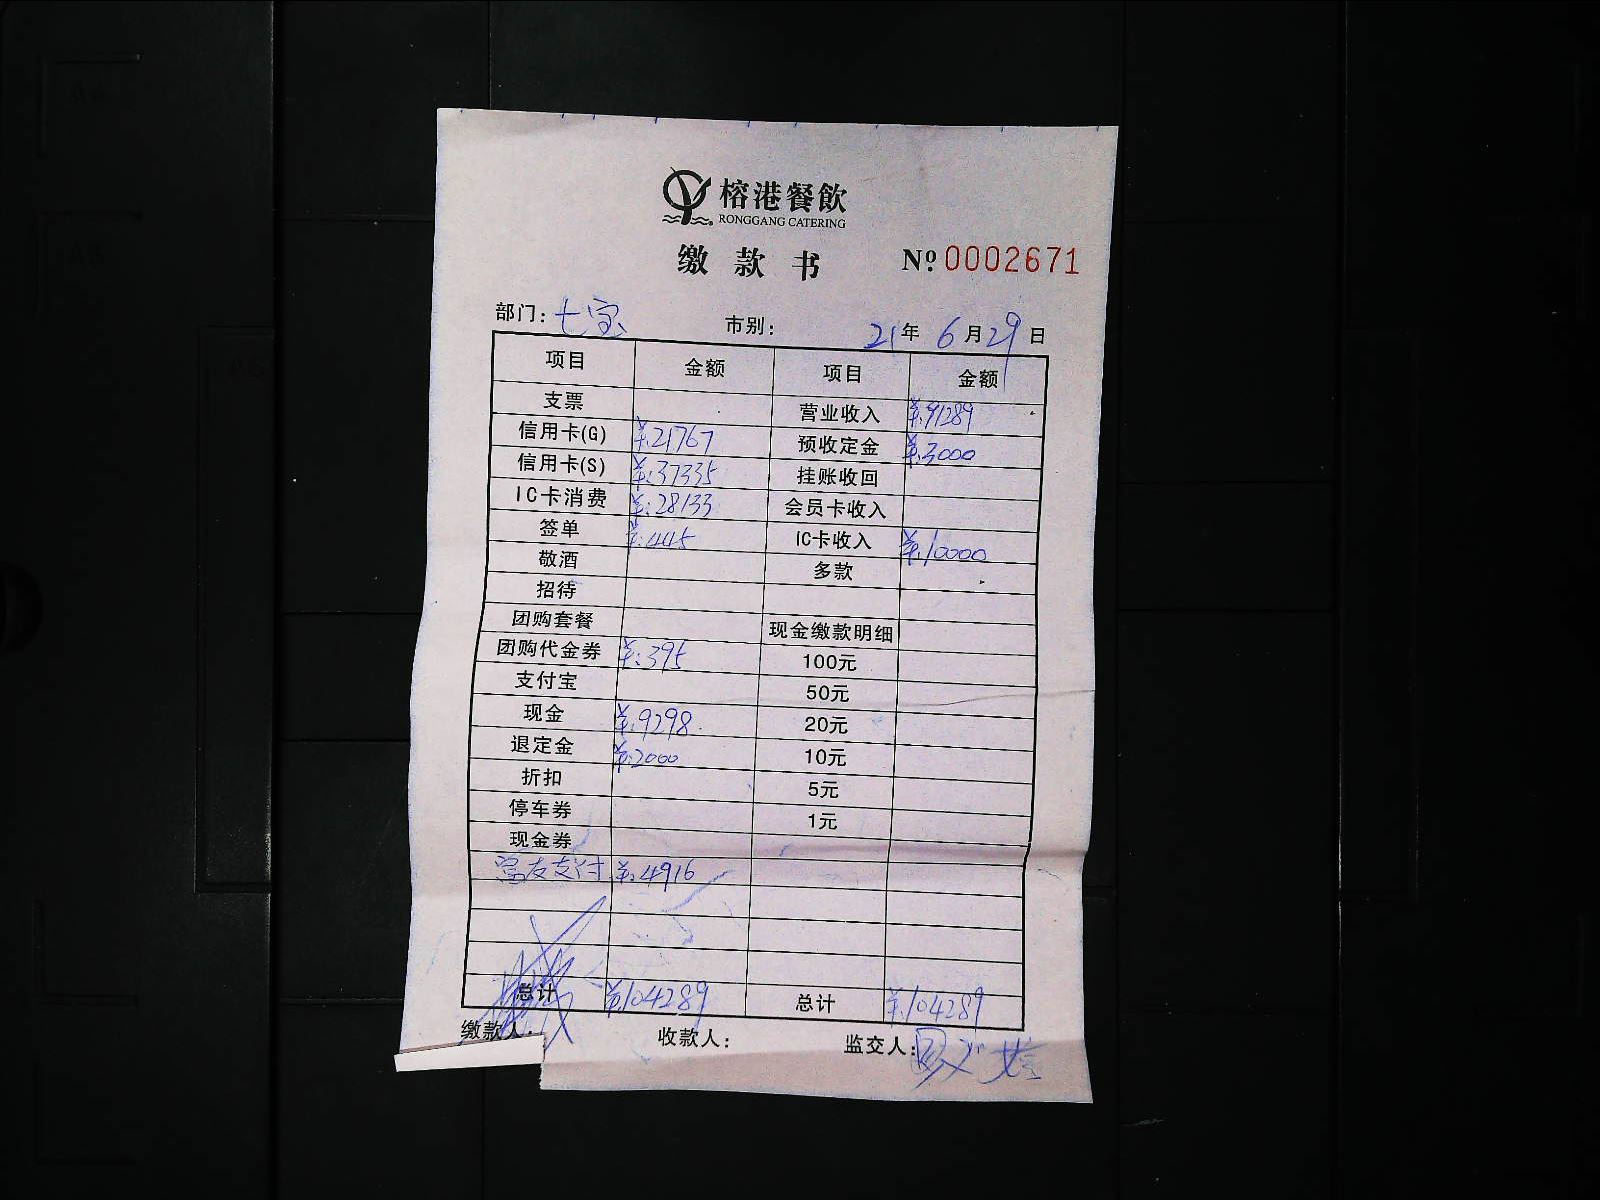 榕港餐飲
RONGGANG CATERING
缴款书 Nº 0002671
部门：七宝 市别： 21年6月29日
项目 金额 项目 金额
支票 营业收入 ¥:91289
信用卡(G) ¥:21767 预收定金 ¥:3000
信用卡(S) ¥:37335 挂账收回
IC卡消费 ¥:28133 会员卡收入
签单 ¥:445 IC卡收入 ¥:10000
敬酒 多款
招待
团购套餐 现金缴款明细
团购代金券 ¥:395 100元
支付宝 50元
现金 ¥:9298 20元
退定金 ¥:2000 10元
折扣 5元
停车券 1元
现金券
支付 ¥:4916
总计 ¥:104289 总计 ¥:104289
缴款人： 收款人： 监交人：